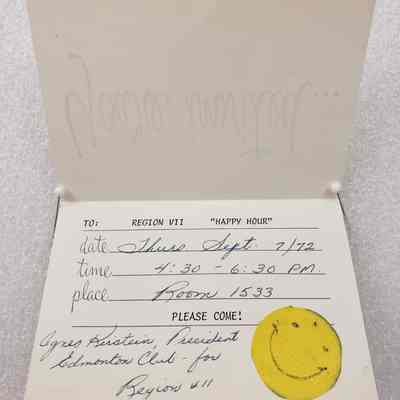 you're invited...
TO: REGION VII "HAPPY HOUR"
date Thurs Sept. 7/72
time 4:30 - 6:30 P.M.
place Room 1533
PLEASE COME!
Agnes Kirstein, President
Edmonton Club - for
Region VII